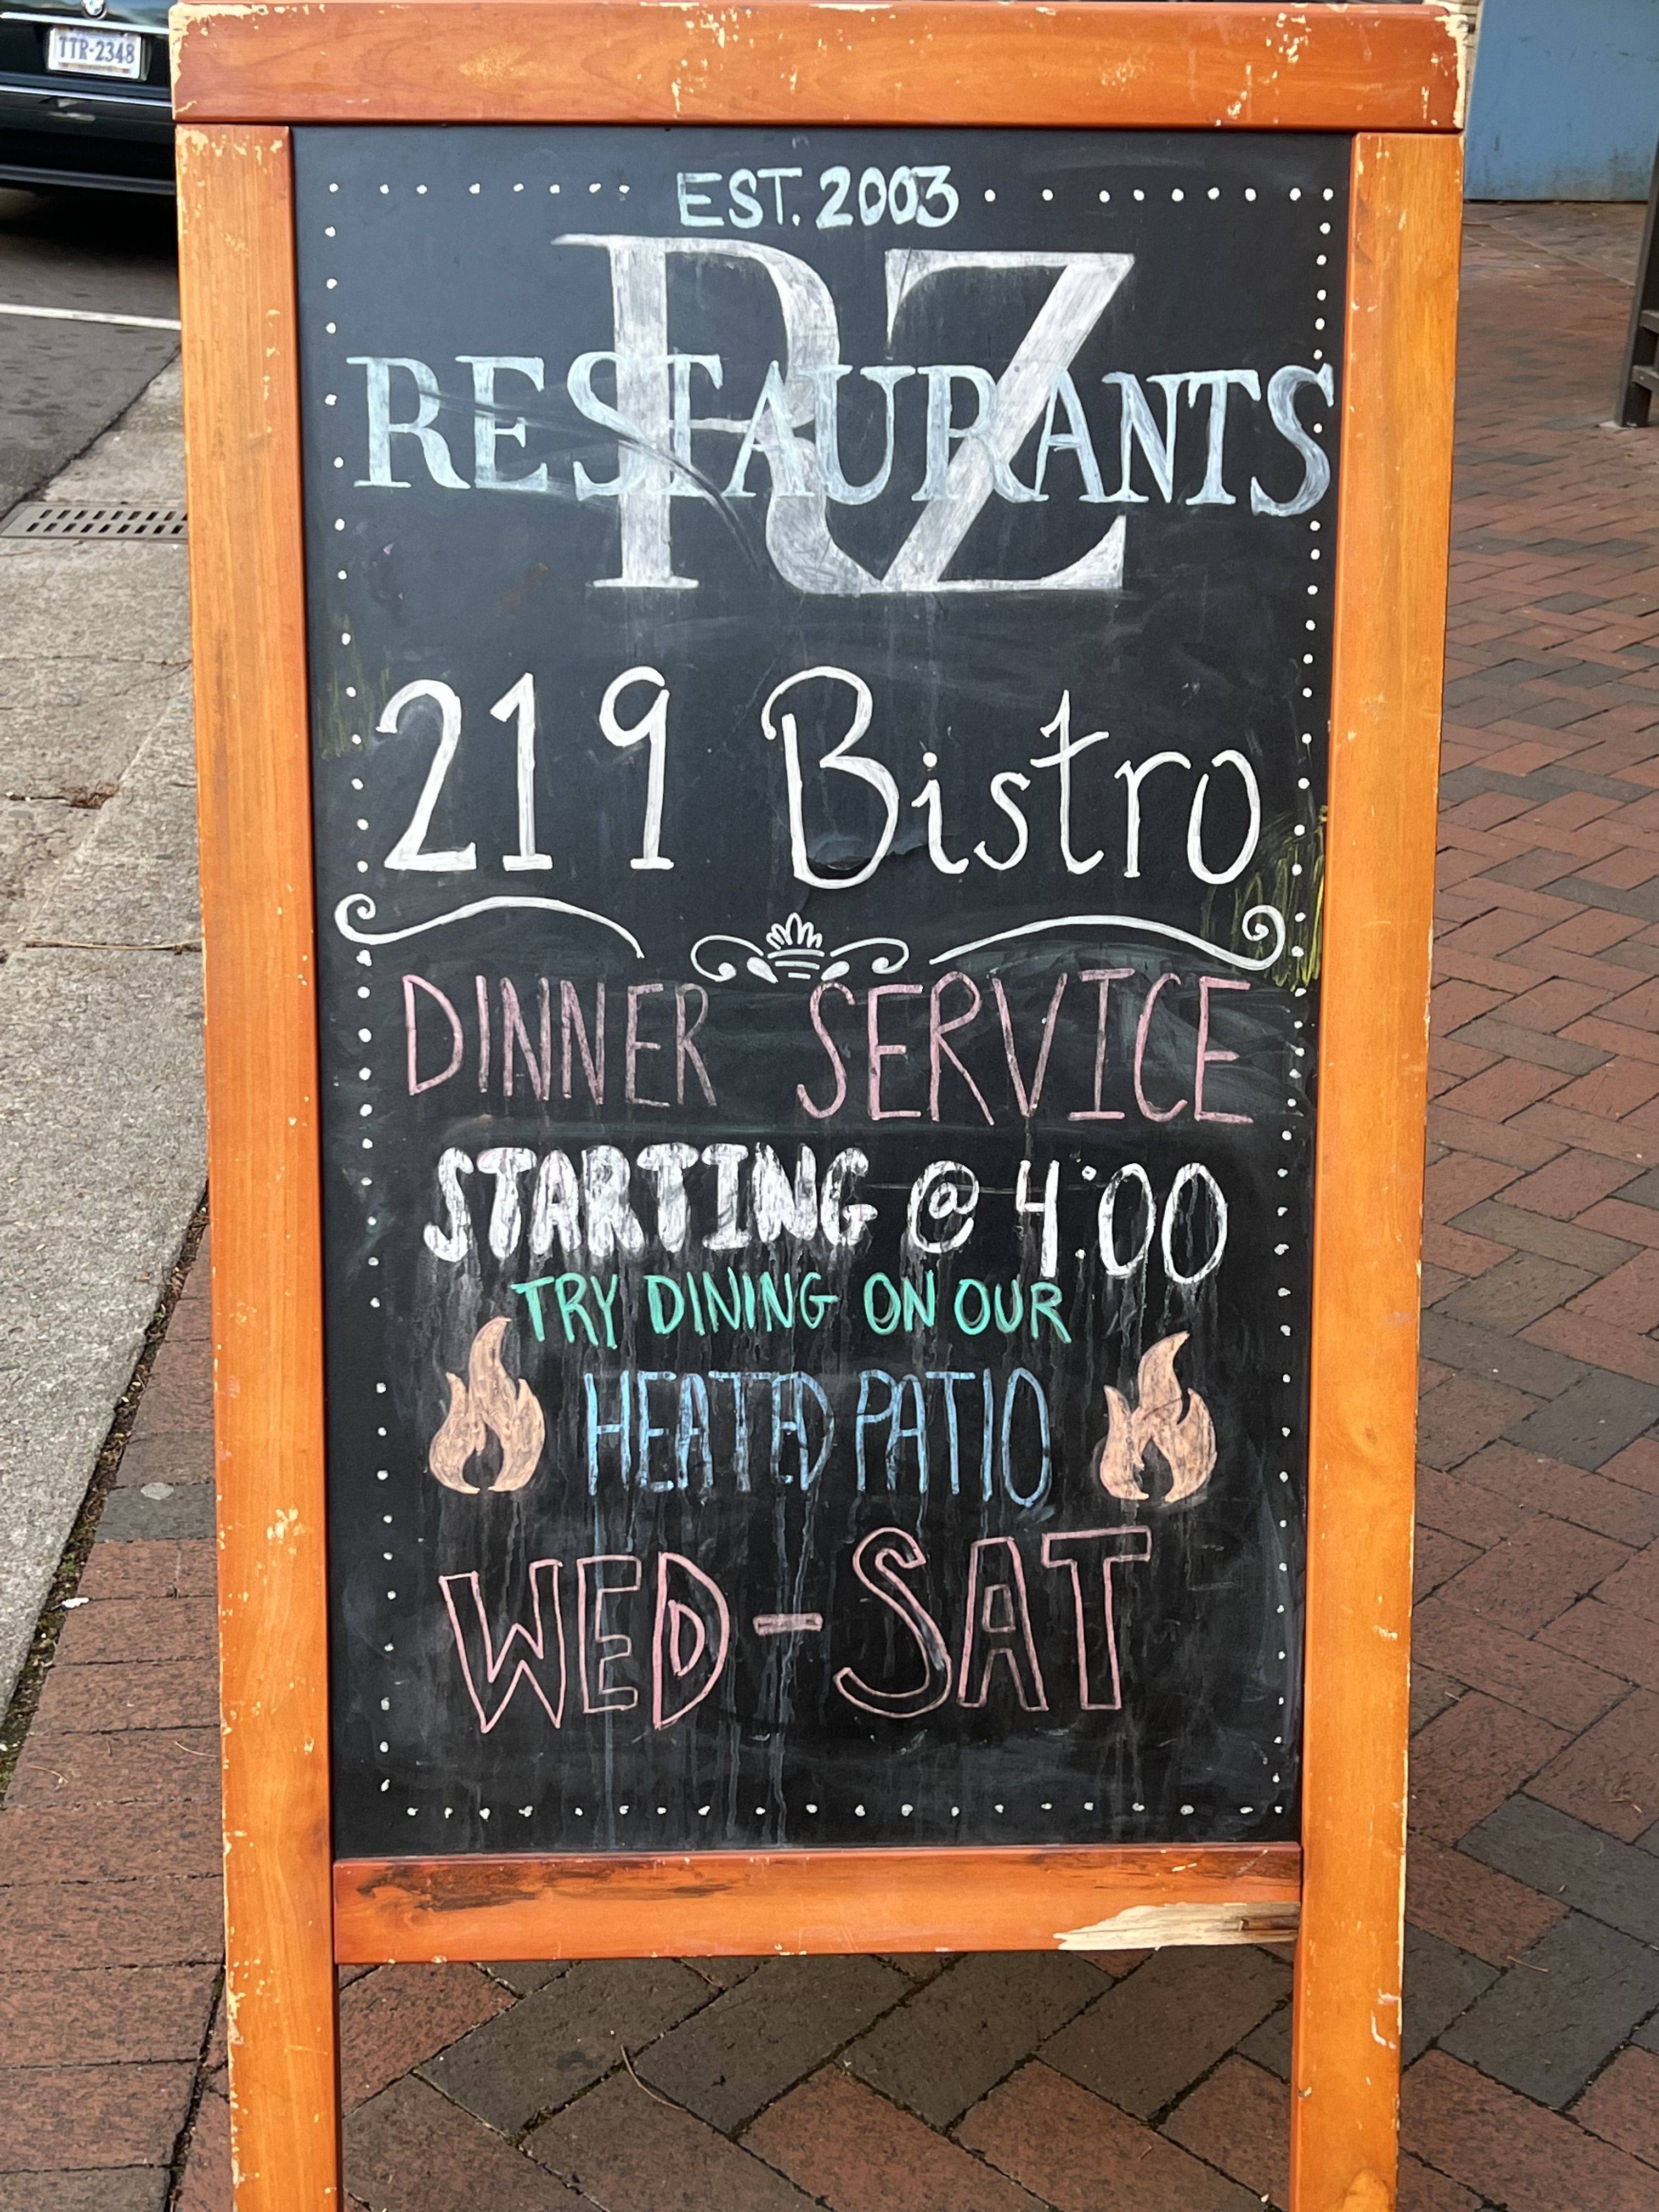 TTR-2348
EST. 2003
RZ
RESTAURANTS
219 Bistro
DINNER SERVICE
STARTING @ 4:00
TRY DINING ON OUR
HEATED PATIO
WED-SAT